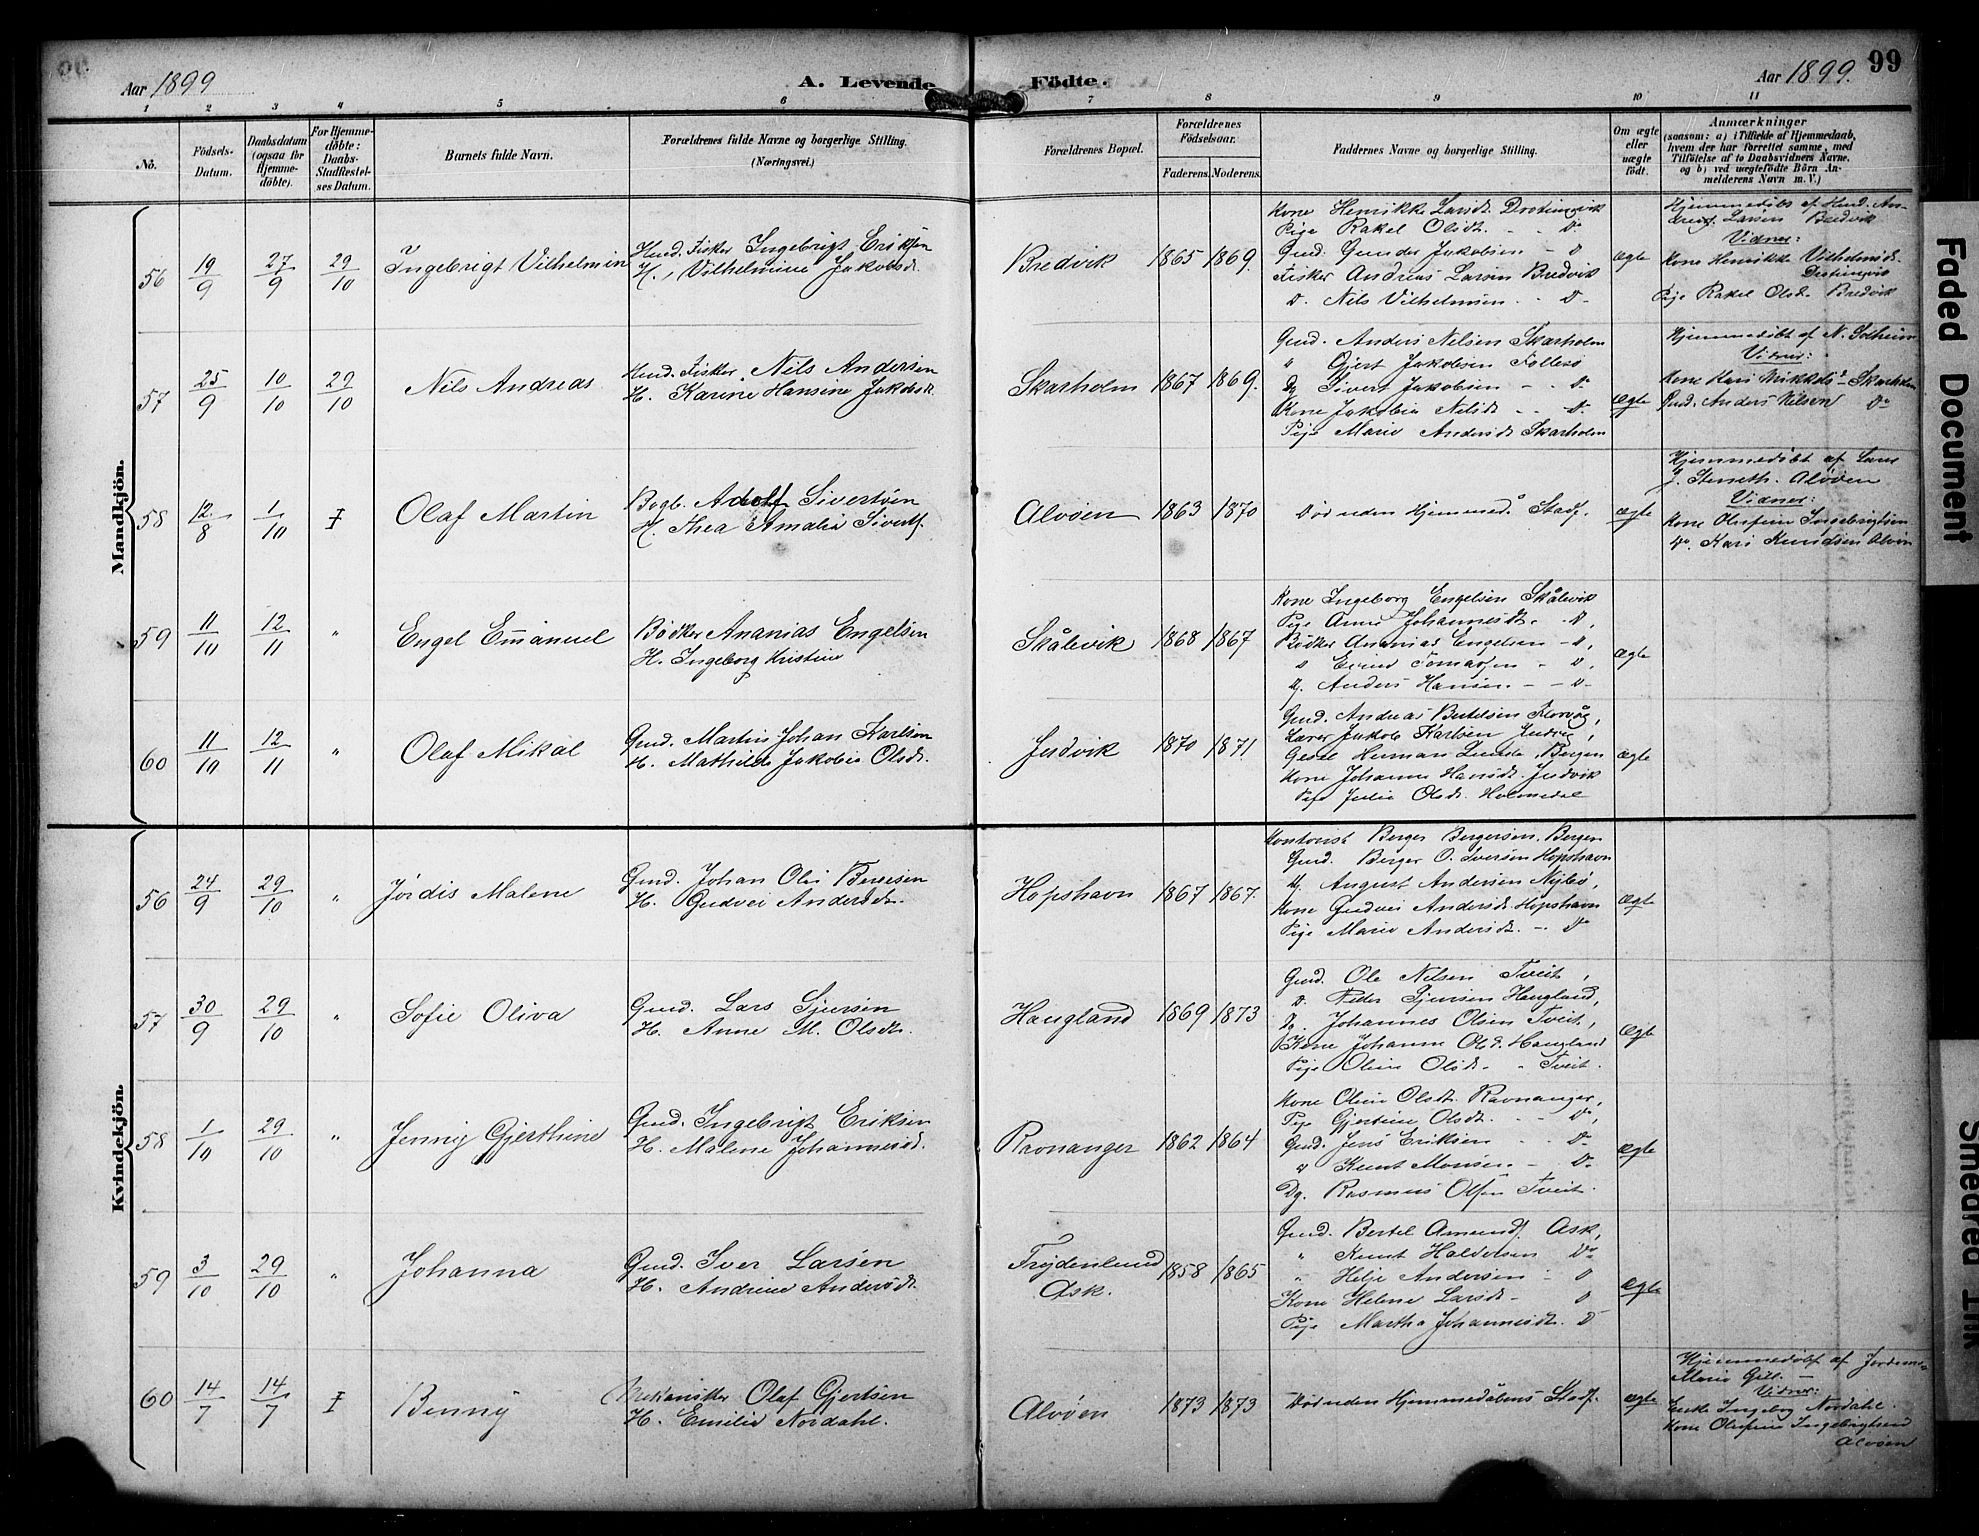 99
Aar 1899
A. Levende Födte.
Aar 1899.
1 2 3 4 5 6 7 8 9 10 11
No.
Födsels-Datum.
Daabsdatum (ogsaa for Hjemme-döbte).
For Hjemme-döbte: Daabs-Stadfæstel-ses Datum.
Barnets fulde Navn.
Forældrenes fulde Navne og borgerlige Stilling. (Næringsvei.)
Forældrenes Bopæl.
Forældrenes Födselsaar.
Faderens. Moderens.
Faddernes Navne og borgerlige Stilling.
Om ægte eller uægte födt.
Anmærkninger
(saasom: a) i Tilfælde af Hjemmedaab,
hvem der har forrettet samme, med
Tilföielse af to Daabsvidners Navne,
og b) ved uægtefödte Börn An-
melderens Navn m. V.)
Mandkjön.
56 19/9 27/9 29/10 Ingebrigt Vilhelmin
Fisker Ingebrigt Eriksen
H. Vilhelmine Jakobsd.
Bredvik 1865 1869.
Kone Henrikke Larsdt.
Pige Rakel Olsdt. - - Do
Gmd. Gunder Jakobsen - D
Fisker Andreas Larsen Bredvik
D. Nils Vilhelmsen - - Do
ægte
Larsen Bredvik
Vidner:
Kone Henrikke Vilhelmsd.
Pige Rakel Olsd. Bredvik
57 25/9 10/10 29/10 Nils Andreas
Fisker Nils Andersen
H. Karine Hansine Jakobsd.
Skarholm 1867 1869.
Gmd. Anders Nilsen Skarholm
" Gjert Jakobsen Follesø
Dg Sivert Jakobsen - - Do
Kone Jakobia Nilsd. - - D.
Pige Marie Andersd. Skarholm
ægte
Hjemmedøbt af N. Solheim
Vidner:
Kone Kari Skarholm
Gmd. Anders Nilsen Do
58 12/8 1/10 Olaf Martin
Bogb. Adolf Sivertsen
H. Thea Amalia
Alvøen 1863 1870
Død uden Hjemmed. Stadf.
ægte
Hjemmedøbt af
Alvøen
Vidner:
Kone Ingebrigtsen
Do. Kari Knudsen Alvøen
59 11/10 12/11 " Engel Emanuel
Bødker Ananias Engelsen
H. Ingeborg Kristine
Skålevik 1868 1867
Kone Ingeborg Engelsen Skålevik
Pige Anna Johannesdt. - D,
Bødker Ananias Engelsen - D,
Anders Hansen - - D
ægte
60 11/10 12/11 " Olaf Mikal
Gmd. Martin Johan Karlsen
H. Mathilde Jakobia Olsdt.
Juvik 1870 1871
Gmd. Andreas Bertelsen
Lærer Jakob Karlsen
Herman Bergen
Kone Johanne Hansdt.
Pige Julia Olsdt. Holmedal
ægte
Kvindekjön.
56 24/9 29/10 " Jórdis Malene
Gmd. Johan Olai
H. Gudvei Andersdtr.
Hopshavn 1867 1867.
Kontorist Berger Bergersen, Bergen
Gmd. Berger O. Iversen Hopshavn
Dg. August Andersen
Kone Gudvei Andersd. Hopshavn
Pige Marie Andersdt. - Do
ægte
57 30/9 29/10 " Sofie Oliva
Gmd. Lars Sjursen
H. Anne M. Olsdt.
Haugland 1869 1873
Gmd. Ole Nilsen Tveit,
D. Peder Sjursen Haugland,
Dg. Johannes Olsen Tveit,
Kone Johanne Olsd. Haugland
Pige Oline Olsdt. - " Tveit.
ægte
58 1/10 29/10 " Jenny Gjerthine
Gmd. Ingebrigt Eriksen
H. Malene Johannesd.
Ravnanger 1862 1864
Kone Oline Olsdt. Ravnanger,
Pige Gjertine Olsdt. - Do,
Gmd. Jens Eriksen - - Do
" Knut Monsen - Do
Dg. Rasmus Olsen Tveit.
ægte
59 3/10 29/10 " Johanna
Gmd. Iver Larsen
H. Andrine Andersdt.
Frydenlund
Ask. 1858 1865
Gmd. Bertel Amunds. Ask,
" Knut Halvorsen Do
" Helje Andersen - D
Kone Helene Larsdt - D
Pige Martha Johannesdt. D
ægte
60 14/7 14/7 Benny
Mekaniker Olaf Gjertsen
H. Emilie Nordahl.
Alvøen 1873 1873
Død uden Hjemmedåbens Stadf.
ægte
Hjemmedøbt af
Marie
Vidner:
Enke Ingeborg Nordahl.
Kone Ingebrigtsen
Alvøen
Faded Document
Smeared Ink